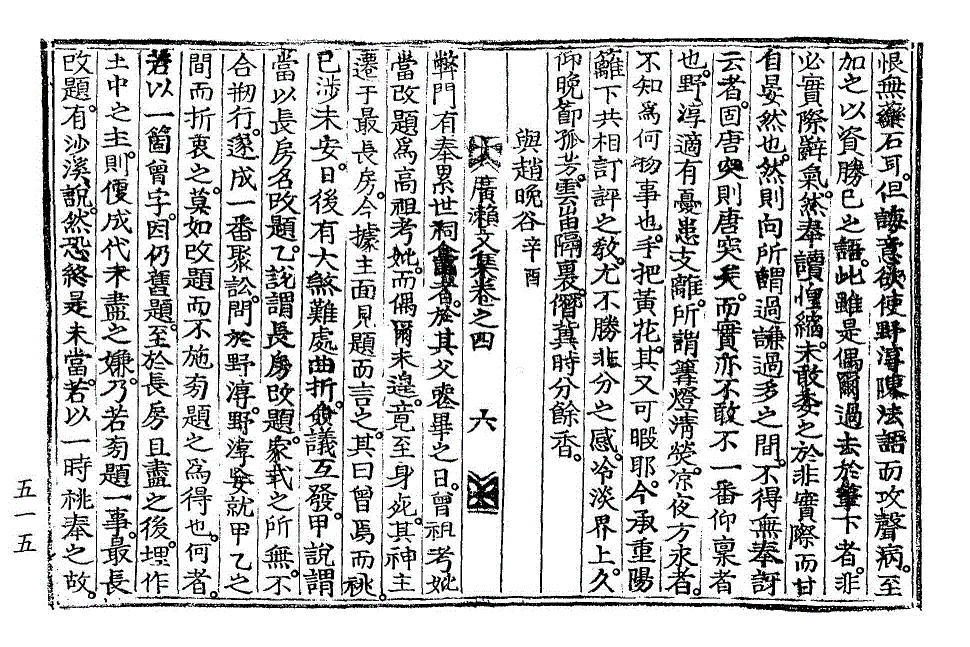 恨無藥石耳。但誨意欲使野淳陳法語而攻聲病。至
加之以資勝己之語。此雖是偶爾過去於筆下者。非
必實際辭氣。然奉讀惶縮。未敢委之於非實際而甘
自晏然也。然則向所謂過謙過多之間。不得無奉訝
云者。固唐突則唐突矣。而實亦不敢不一番仰稟者
也。野淳適有憂患支離。所謂篝燈淸熒。凉夜方永者。
不知爲何物事也。手把黃花。其又可暇耶。今承重陽
籬下共相訂評之敎。尤不勝非分之感。冷淡界上。久
仰晩節孤芳。雲岳隔裏。僭冀時分餘香。
與趙晩谷 辛酉
廣瀨文集卷之四 六
弊門有奉累世祠龕者。於其父喪畢之日。曾祖考妣
當改題爲高祖考妣。而偶爾未遑。竟至身死。其神主
遷于最長房。今據主面見題而言之。其曰曾焉而祧
已涉未安。日後有大煞難處曲折。僉議互發。甲說謂
當以長房名改題。乙說謂長房改題。家式之所無。不
合刱行。遂成一番聚訟。問於野淳。野淳妄就甲乙之
間而折衷之。莫如改題而不施旁題之爲得也。何者。
若以一箇曾字。因仍舊題。至於長房且盡之後。埋作
土中之主。則便成代未盡之嫌。乃若旁題一事。最長
改題。有沙溪說。然恐終是未當。若以一時祧奉之故。
五一五